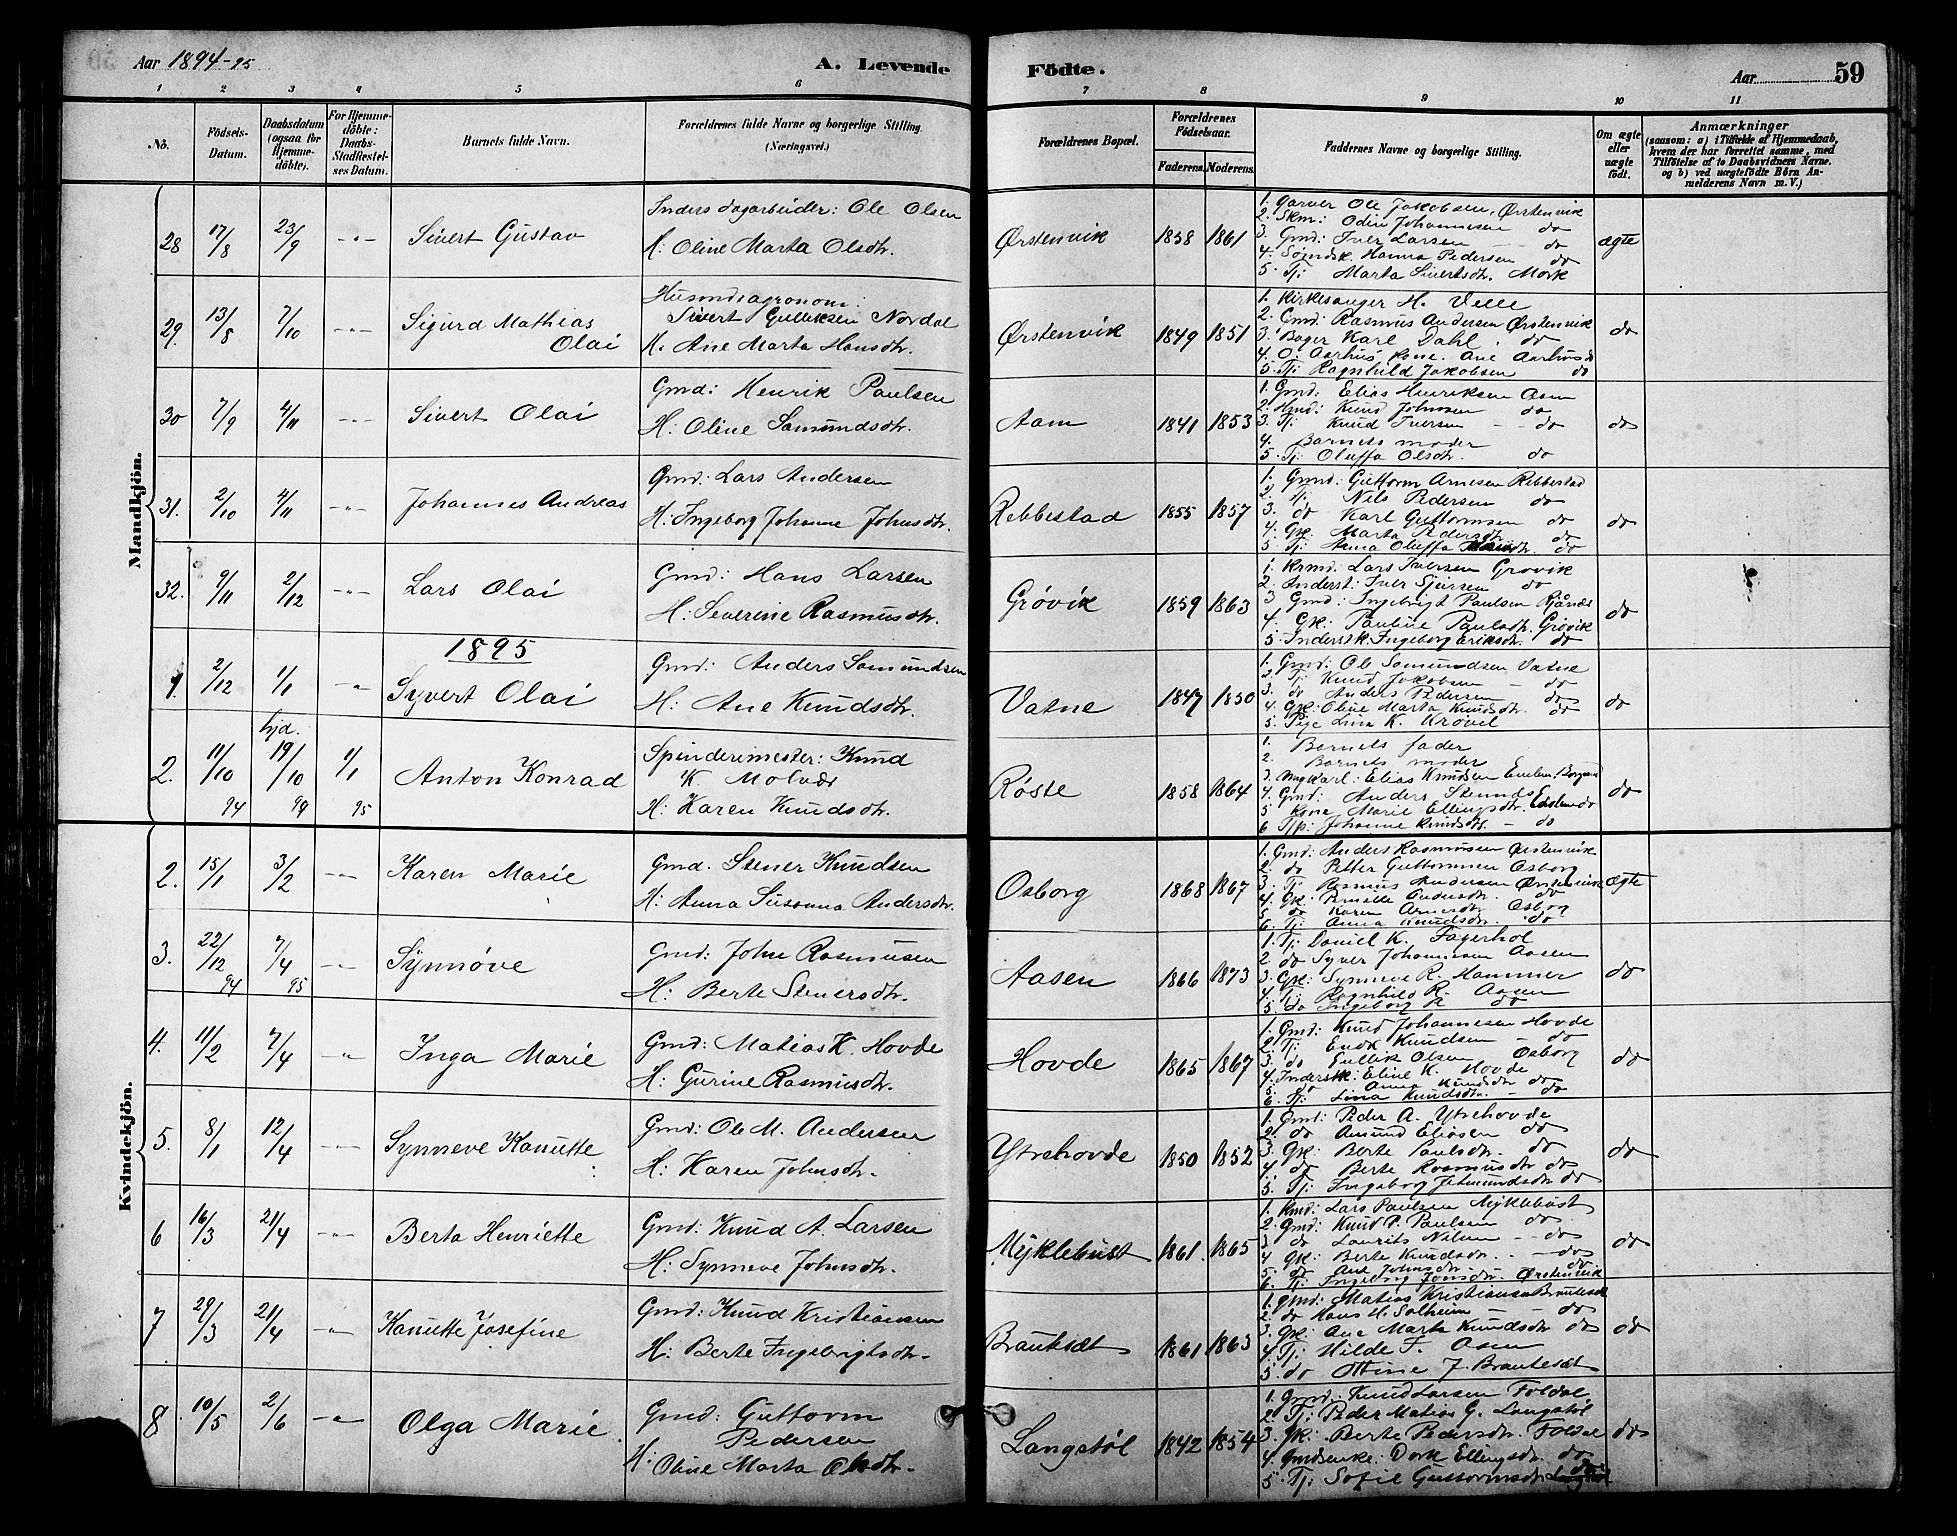 Aar 1894-95
A. Levende
Födte.
Aar
59
1 2 3 4 5 6 7 8 9 10 11
No.
Födsels-
Datum.
Daabsdatum
(ogsaa for
Hjemme-
döbte).
For Hjemme-
döbte:
Daabs-
Stadfæstel-
ses Datum.
Barnets fulde Navn.
Forældrenes fulde Navne og borgerlige Stilling.
(Næringsvei.)
Forældrenes Bopæl.
Forældrenes
Födselsaar.
Faderens. Moderens.
Faddernes Navne og borgerlige Stilling.
Om ægte
eller
uægte
födt.
Anmærkninger
(saasom: a) i Tilfælde af Hjemmedaab,
hvem der har forrettet samme, med
Tilföielse af to Daabsvidners Navne.
og b) ved uægtefödte Börn An-
melderens Navn m. V.)
Mandkjön.
28 17/8 23/9 -"- Sivert Gustav
Inders dagarbeider: Ole Olsen
H: Oline Marta Olsdtr.
Ørstenvik 1858 1861
1. Garver Ole Jakobsen, Ørstenvik
2. Skm: Odin Johannesen do
3. Gmd: Iver Larsen do
4. Hanna Pedersen do
5. Tj: Marta Sivertsdtr. Mork
ægte
29. 13/8 7/10 -"- Sigurd Mathias
Olai
Husmdsagronom:
Sivert Gulliksen Nordal
H. Ane Marta Hansdtr.
Ørstenvik 1849 1851
1. Kirkesanger H. Velle
2. Gmd: Rasmus Andersen Ørstenvik
3. Bager Karl Dahl. do
4. O. Aarhus' kone. Ane Aarhus do
5. Tj: Ragnhild Jakobsen do
do
30 7/9 4/11 -"- Sivert Olai
Gmd: Henrik Paulsen
H: Oline Samundsdtr.
Aam 1841 1853
1. Gmd: Elias Henriksen Aam
2. Hmd: Knud Johnsen do
3. Tj: Knud Iversen do
4. Barnets moder
5. Tj: Oluffa Olsdtr. do
do
31. 2/10 4/11 -"- Johannes Andreas
Gmd: Lars Andersen
H: Ingeborg Johanne Johnsdtr.
Rebbestad 1855 1857
1. Gmd: Guttorm Arnesen Rebbestad
2. Tj: Nils Pedersen do
3. do Karl Guttormsen do
4. Gk. Marta Pedersdtr. do
5. Tj: Anna Oluffa do
do
32. 9/11 2/12 -"- Lars Olai
Gmd: Hans Larsen
H: Severine Rasmusdtr.
Grøvik 1859 1863
1. Kmd: Lars Iversen Grøvik
2. Inderst: Iver do
3 Gmd: Ingebrigt Paulsen
4. Gk: Pauline Paulsdtr. Grøvik
5. Inderstk. Ingeborg Eriksdtr. do
do
1895
1 2/12 1/1 -"- Syvert Olai
Gmd: Anders Samundsen
H: Ane Knudsdtr.
Vatne 1847 1850
1. Gmd: Ole Samundsen Vatne
2. Tj: Knud Jakobsen do
3. do Anders Pedersen do
4. Gk: Oline Marta Knudsdtr. do
5. Pige Lina K. Krøvel
do
2. 11/10 94 hjd. 19/10 94 1/1 95 Anton Konrad
Spinderimester: Knud
K. Molvær
H: Karen Knudsdtr.
Røste 1858 1864
1. Barnets fader
2. Barnets moder
3. Ungkarl: Elias Knudsen
4. Gmd: Anders
5 Kone Marie Ellingsdtr. do
6 Johanne Knudsdtr. do
do
Kvindekjön.
2. 15/1 3/2 -"- Karen Marie
Gmd. Stener Knudsen
H: Anna Susanna Andersdtr.
Osborg 1868 1867
1. Gmd: Anders Rasmussen Ørstenvik
2. do Petter Guttormsen Osborg
3. Tj: Rasmus Andersen Ørstenvik
4. Gk: Pernille Andersdtr. do
5. do Karen Arnesdtr. Osborg
6. Tj: Anna Knudsdtr. do
ægte
3. 22/12 94 7/4 95 -"- Synnøve
Gmd: John Rasmusen
H: Berte Stenersdtr.
Aasen 1866 1873
1. Tj: Daniel K. Fagerhol
2 do Syver Johannesen Aasen
3. Gk: Synneve R. Hammer
4. Tj: Ragnhild R. Aasen
5. do Ingeborg R do
do
4. 11/2 7/4 -"- Inga Marie
Gmd: Matias K. Hovde
H: Gurine Rasmusdtr.
Hovde 1865 1867
1. Gmd: Knud Johannesen Hovde
2. Tj: Knudsen do
3. do Gullik Olsen Osborg
4. Inderstk: Eline K. Hovde
5. do Anna Knudsdtr do
6. Tj: Lina Knudsdtr. do
do
5. 8/1 12/4 -"- Synneve Kanutte
Gmd: Ole M. Andersen
H: Karen Johnsdtr.
Ytrehovde 1850 1852
1. Gmd: Peder A. Ytrehovde
2. do Amund Eliasen do
3. Gk: Berte Paulsdtr. do
4. do Berte Rasmusdtr do
5. Tj: Ingeborg do
do
6 16/3 21/4 -"- Berta Henriette
Gmd: Knud A. Larsen
H: Synneve Johnsdtr.
Myklebust 1861. 1865
1. Kmd: Lars Paulsen Myklebust
2. Gmd: Knud P. Paulsen do
3 do Laurits Nilsen do
4 Gk: Berte Knudsdtr. do
5. do Ane Johnsdtr. do
6. Tj: Ingeborg Jonsdtr. Ørstenvik
do
7 29/3 21/4 -"- Kanutte Josefine
Gmd: Knud Kristiansen
H: Berte Ingebrigtsdtr.
Brautesæt 1861 1863
1. Gmd: Matias Kristiansen Brautesæt
2. do Hans H. Solheim do
3. Gk: Ane Marta Knudsdtr do
4. Tj: Hilde F. Aasen
5. do Ottine J. Brautesæt
do
8 10/5 2/6 -"- Olga Marie.
Gmd: Guttorm
Pedersen
H: Oline Marta Olsdtr.
Langstøl 1842 1854
1. Gmd: Knud Larsen Foldal
2. Tj: Peder Matias G. Langstøl
3. Gk: Berte Pedersdtr. Foldal
4. Gmdsenke. Dork Ellingsdtr. do
5. Tj: Sofie Guttormsdtr
do